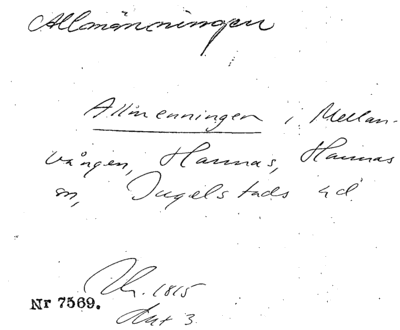 Allmänningen
Allmenningen i Mellan-
vången, Hannas, Hannas
sn, Ingelstads hd.
1815
Nr 7569.
Akt 3.